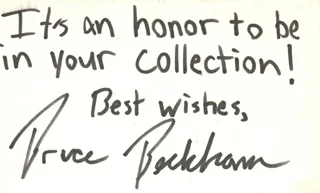 It's an honor to be
in your collection!
Best wishes,
Bruce Beckham